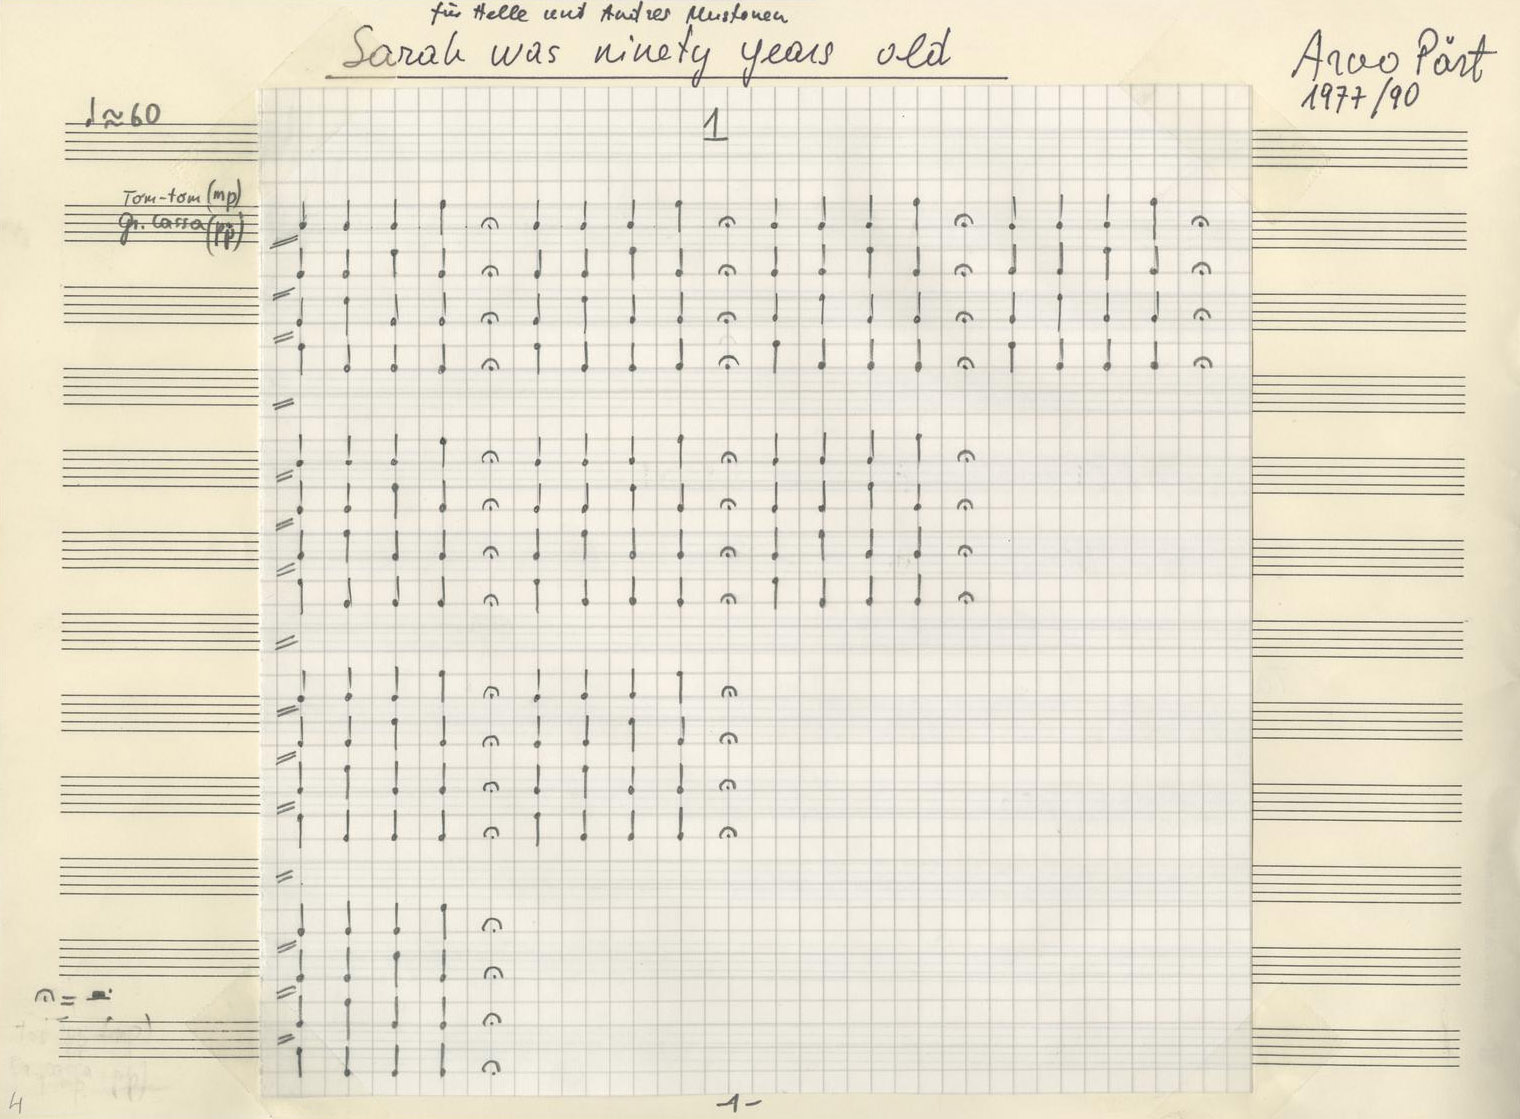 für Helle und Andres Mustonen
Sarah was ninety years old
Arvo Pärt
1977/90
♩≈60
1
Tom-tom (mp)
gr. cassa (pp)
𝄐 =
-1-
4